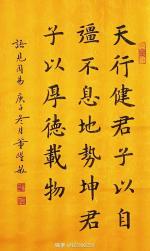 天行健君子以自
彊不息地勢坤君
子以厚德載物
語見周易庚子冬月